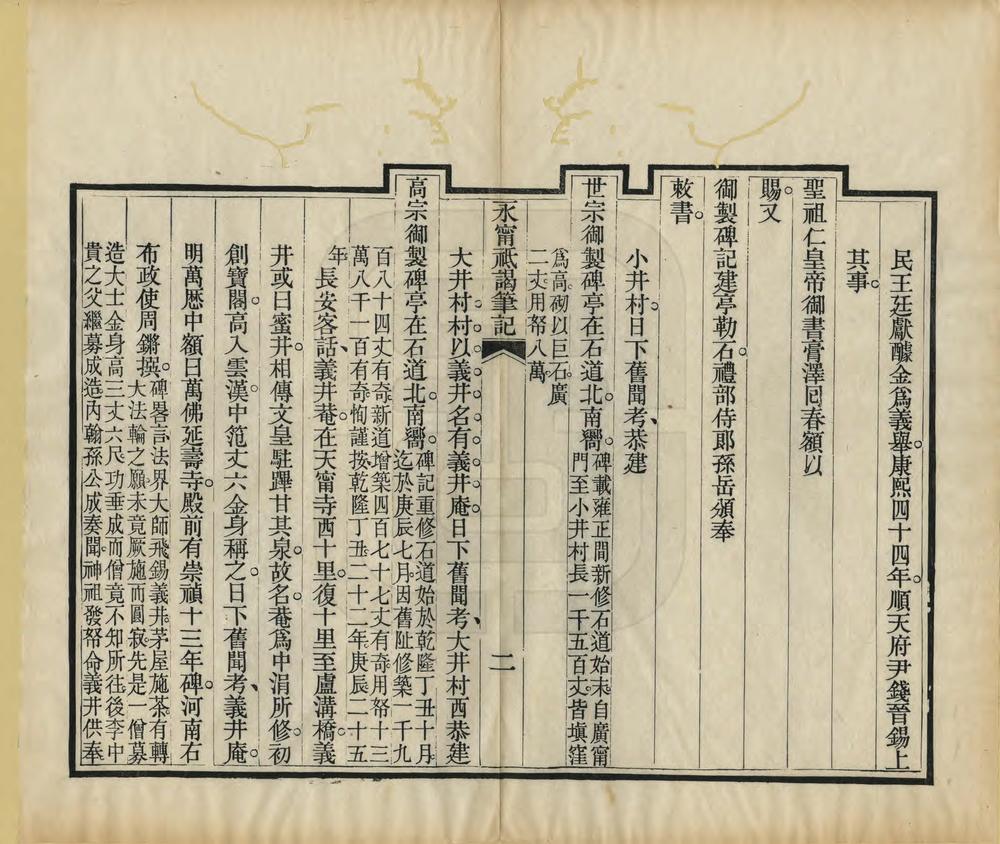 民王廷獻醵金爲義舉。康熙四十四年。順天府尹錢晉錫上
其事。
聖祖仁皇帝御書膏澤囘春額以
賜。又
御製碑記建亭勒石。禮部侍郎孫岳頒奉
敕書。
小井村。日下舊聞考、恭建
世宗御製碑亭在石道北。南嚮。碑載雍正間新修石道始末。自廣甯
門至小井村。長一千五百丈。皆塡窪
爲高。砌以巨石。廣
二丈。用帑八萬。
永甯祇謁筆記
二
大井村。村以義井名。有義井庵。日下舊聞考、大井村西恭建
高宗御製碑亭在石道北。南嚮。碑記重修石道始於乾隆丁丑十月。
迄於庚辰七月。因舊阯修築一千九
百八十四丈有奇。新道增築四百七十七丈有奇。用帑十三
萬八千一百有奇。恂謹按乾隆丁丑二十二年。庚辰二十五
年。長安客話、義井菴。在天甯寺西十里。復十里至盧溝橋。義
井或曰蜜井。相傳文皇駐蹕甘其泉。故名。菴爲中涓所修。初
創寶閣。高入雲漢。中笵丈六金身稱之。日下舊聞考、義井庵。
明萬曆中額曰萬佛延壽寺。殿前有崇禎十三年碑。河南右
布政使周鏘撰。碑畧言。法界大師飛錫義井。茅屋施茶。有轉
大法輪之願。未竟厥施而圓寂。先是一僧募
造大士金身高三丈六尺。功垂成而僧竟不知所往。後李中
貴之父繼募成造。內翰孫公成奏聞。神祖發帑命義井供奉